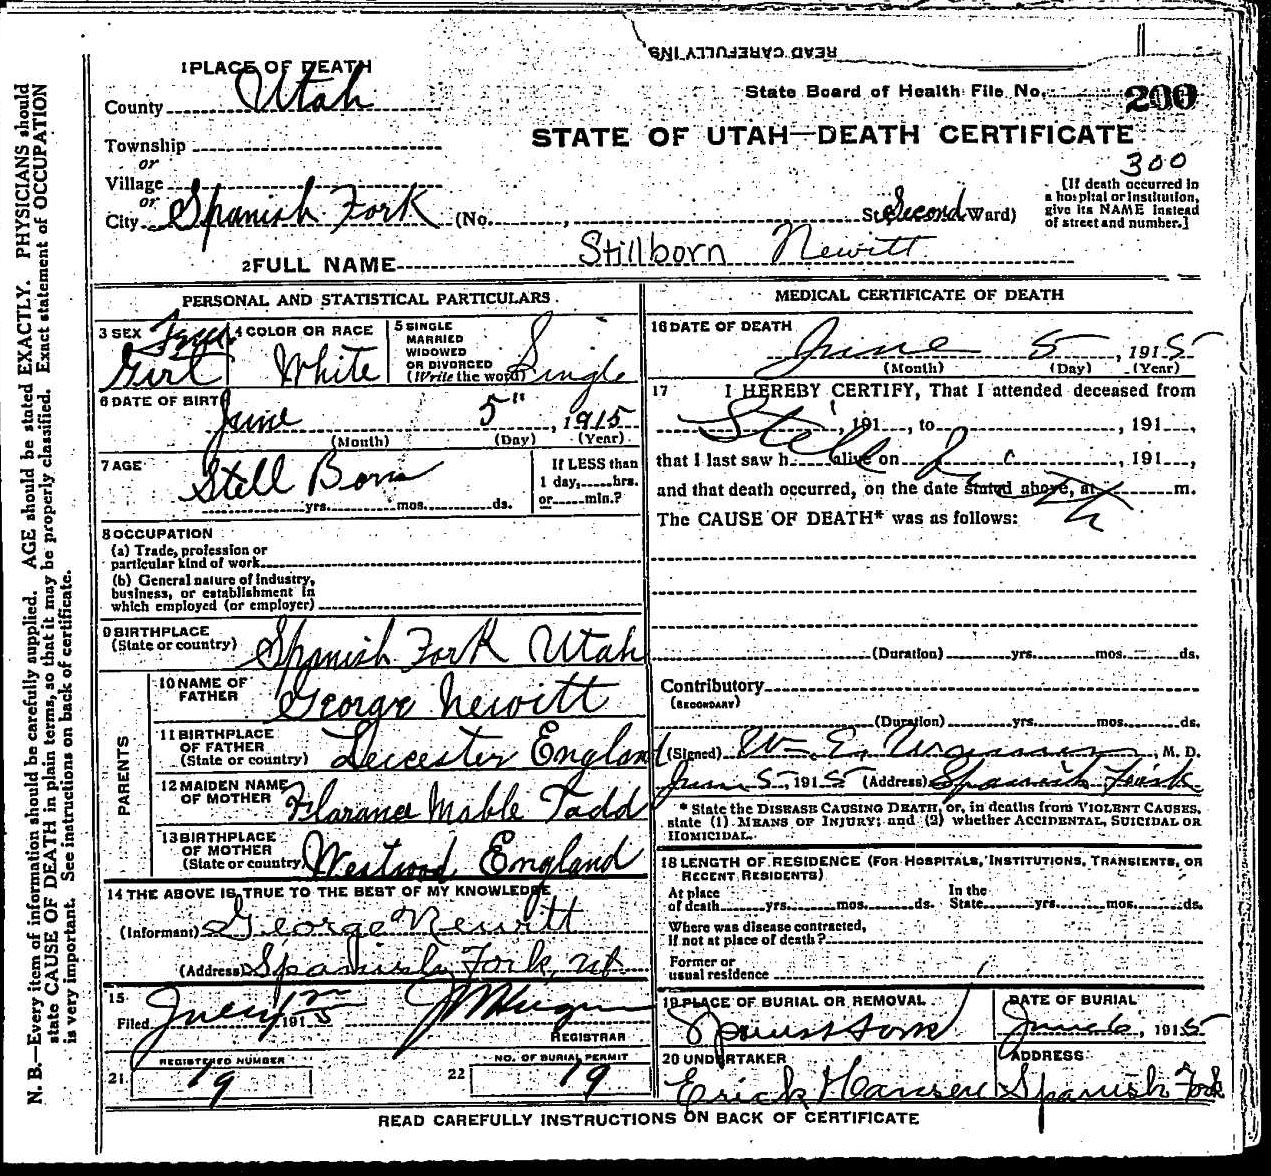 READ CAREFULLY INS
1 PLACE OF DEATH
County Utah
State Board of Health File No. 200
STATE OF UTAH—DEATH CERTIFICATE
300
Township
or
Village
or
City Spanish Fork (No. , St. Second Ward)
[If death occurred in
a hospital or institution,
give its NAME instead
of street and number.]
2 FULL NAME Stillborn Newitt
PERSONAL AND STATISTICAL PARTICULARS
3 SEX Girl
4 COLOR OR RACE White
5 SINGLE
MARRIED
WIDOWED
OR DIVORCED
(Write the word) Single
6 DATE OF BIRTH
June 5", 1915
(Month) (Day) (Year)
7 AGE
Still Born
yrs. mos. ds.
If LESS than
1 day, hrs.
or min.?
8 OCCUPATION
(a) Trade, profession or
particular kind of work
(b) General nature of industry,
business, or establishment in
which employed (or employer)
9 BIRTHPLACE
(State or country) Spanish Fork Utah
PARENTS
10 NAME OF
FATHER George Newitt
11 BIRTHPLACE
OF FATHER
(State or country) Leicester England
12 MAIDEN NAME
OF MOTHER Florance Mable Tadd
13 BIRTHPLACE
OF MOTHER
(State or country) Westwood England
14 THE ABOVE IS TRUE TO THE BEST OF MY KNOWLEDGE
(Informant) George Newitt
(Address) Spanish Fork, Ut
15
Filed 1915
REGISTRAR
REGISTERED NUMBER
21 19
NO. OF BURIAL PERMIT
22 19
MEDICAL CERTIFICATE OF DEATH
16 DATE OF DEATH
June 5, 1915
(Month) (Day) (Year)
17 I HEREBY CERTIFY, That I attended deceased from
Still , 191 , to , 191 ,
that I last saw h alive on , 191 ,
and that death occurred, on the date stated above, at m.
The CAUSE OF DEATH* was as follows:
(Duration) yrs. mos. ds.
Contributory
(SECONDARY)
(Duration) yrs. mos. ds.
(Signed) W. E. , M. D.
June 5, 1915 (Address) Spanish Fork
* State the DISEASE CAUSING DEATH, or, in deaths from VIOLENT CAUSES,
state (1) MEANS OF INJURY; and (2) whether ACCIDENTAL, SUICIDAL OR
HOMICIDAL.
18 LENGTH OF RESIDENCE (FOR HOSPITALS, INSTITUTIONS, TRANSIENTS, OR
RECENT RESIDENTS)
At place
of death yrs. mos. ds.
In the
State yrs. mos. ds.
Where was disease contracted,
if not at place of death?
Former or
usual residence
19 PLACE OF BURIAL OR REMOVAL
Spanish Fork
DATE OF BURIAL
June 6, 1915
20 UNDERTAKER
Erick Hansen
ADDRESS
Spanish Fork
READ CAREFULLY INSTRUCTIONS ON BACK OF CERTIFICATE
N. B.—Every item of information should be carefully supplied. AGE should be stated EXACTLY. PHYSICIANS should
state CAUSE OF DEATH in plain terms, so that it may be properly classified. Exact statement of OCCUPATION
is very important. See instructions on back of certificate.